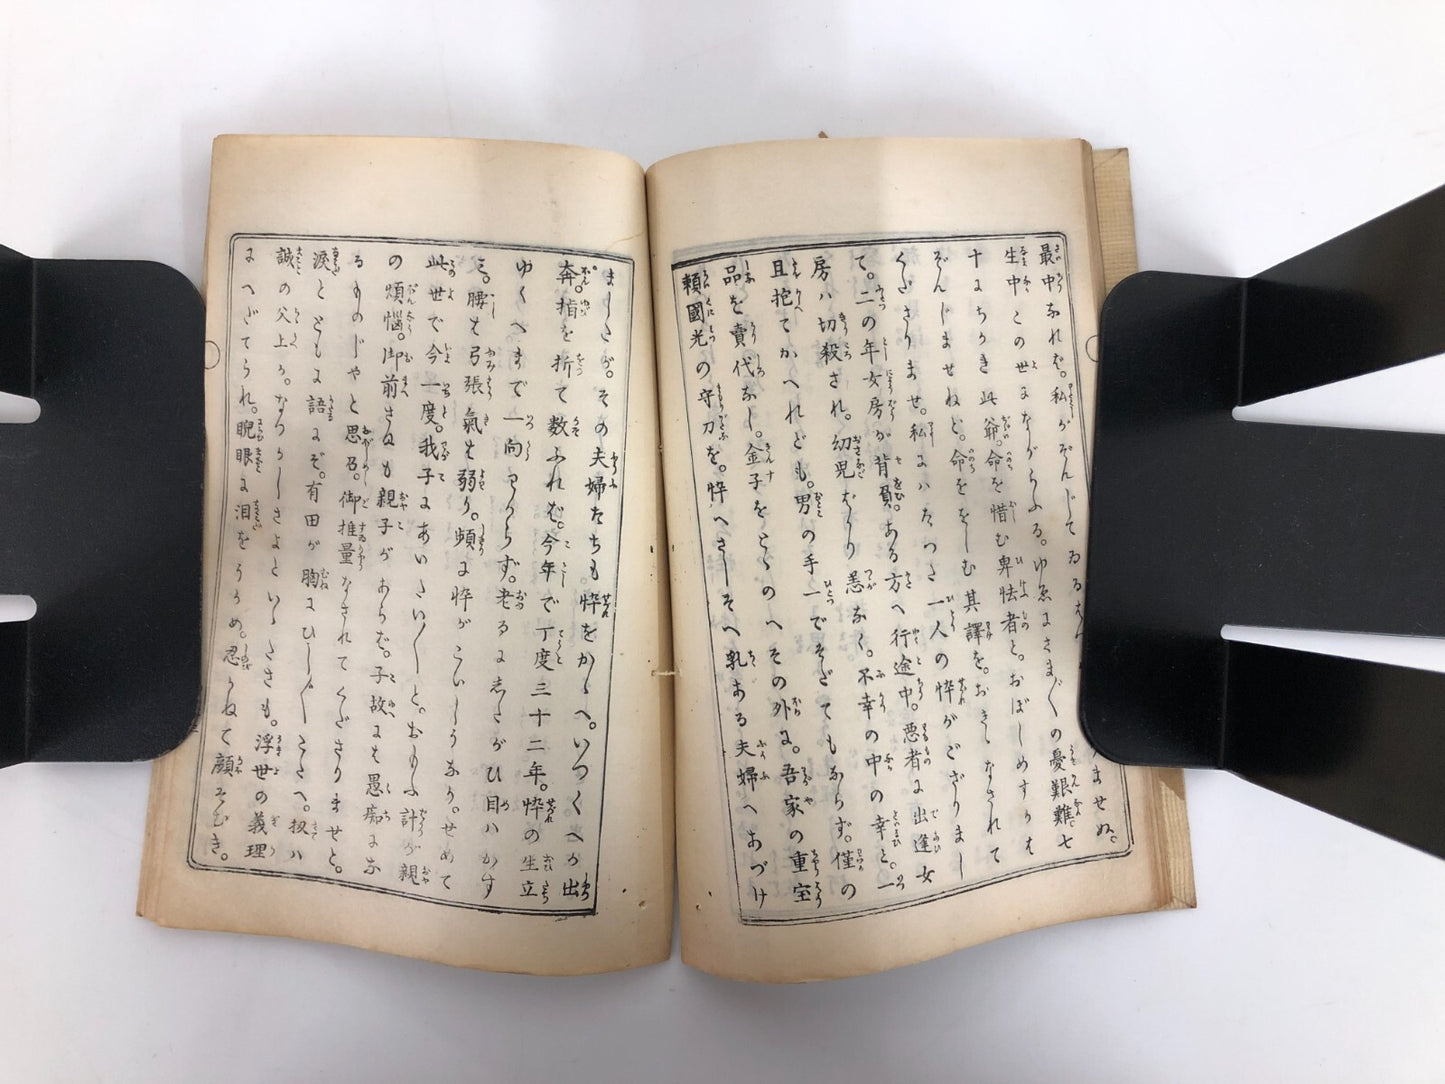 最中なれば。私がぞんじてゐる
ませぬ。
生中この世にながらふる。ゆゑにさま〴〵の憂艱難七
十にちかき此爺。命を惜む卑怯者と。おぼしめすかも
ぞんじませねど。命ををしむ其譯を。おきゝなされて
くださりませ。私にハたつた一人の悴がござりまし
て。二の年女房が背負。ある方へ行途中。悪者に出逢女
房ハ切殺され。幼児ばかり恙なく。不幸の中の幸と。一
且抱てかへれども。男の手一でそだてもならず。僅の
品を賣代なし。金子をとゝのへその外に。吾家の重宝
頼國光の守刀を。悴へさしそへ乳ある夫婦へあづけ
ましたが。その夫婦たちも悴をかゝへ。いづくへか出
奔。指を折て数ふれば。今年で丁度三十二年。悴の生立
ゆくへまで一向わからず。老るにしたがひ目ハかす
む。腰も弓張氣も弱り。頻に悴がこいしうなり。せめて
此世で今一度。我子にあいたい〳〵と。おもふ計が親
の煩悩。御前さぬも親子があらば。子故にも愚痴にな
るものじやと思召。御推量なされてくださりませと。
涙とともに語にぞ。有田が胸にひし〳〵こたへ。扨ハ
誠の父上か。なつかしさよといゝたさも。浮世の義理
にへだてられ。睨眼に泪をうかめ。忍かねて顔そむき。